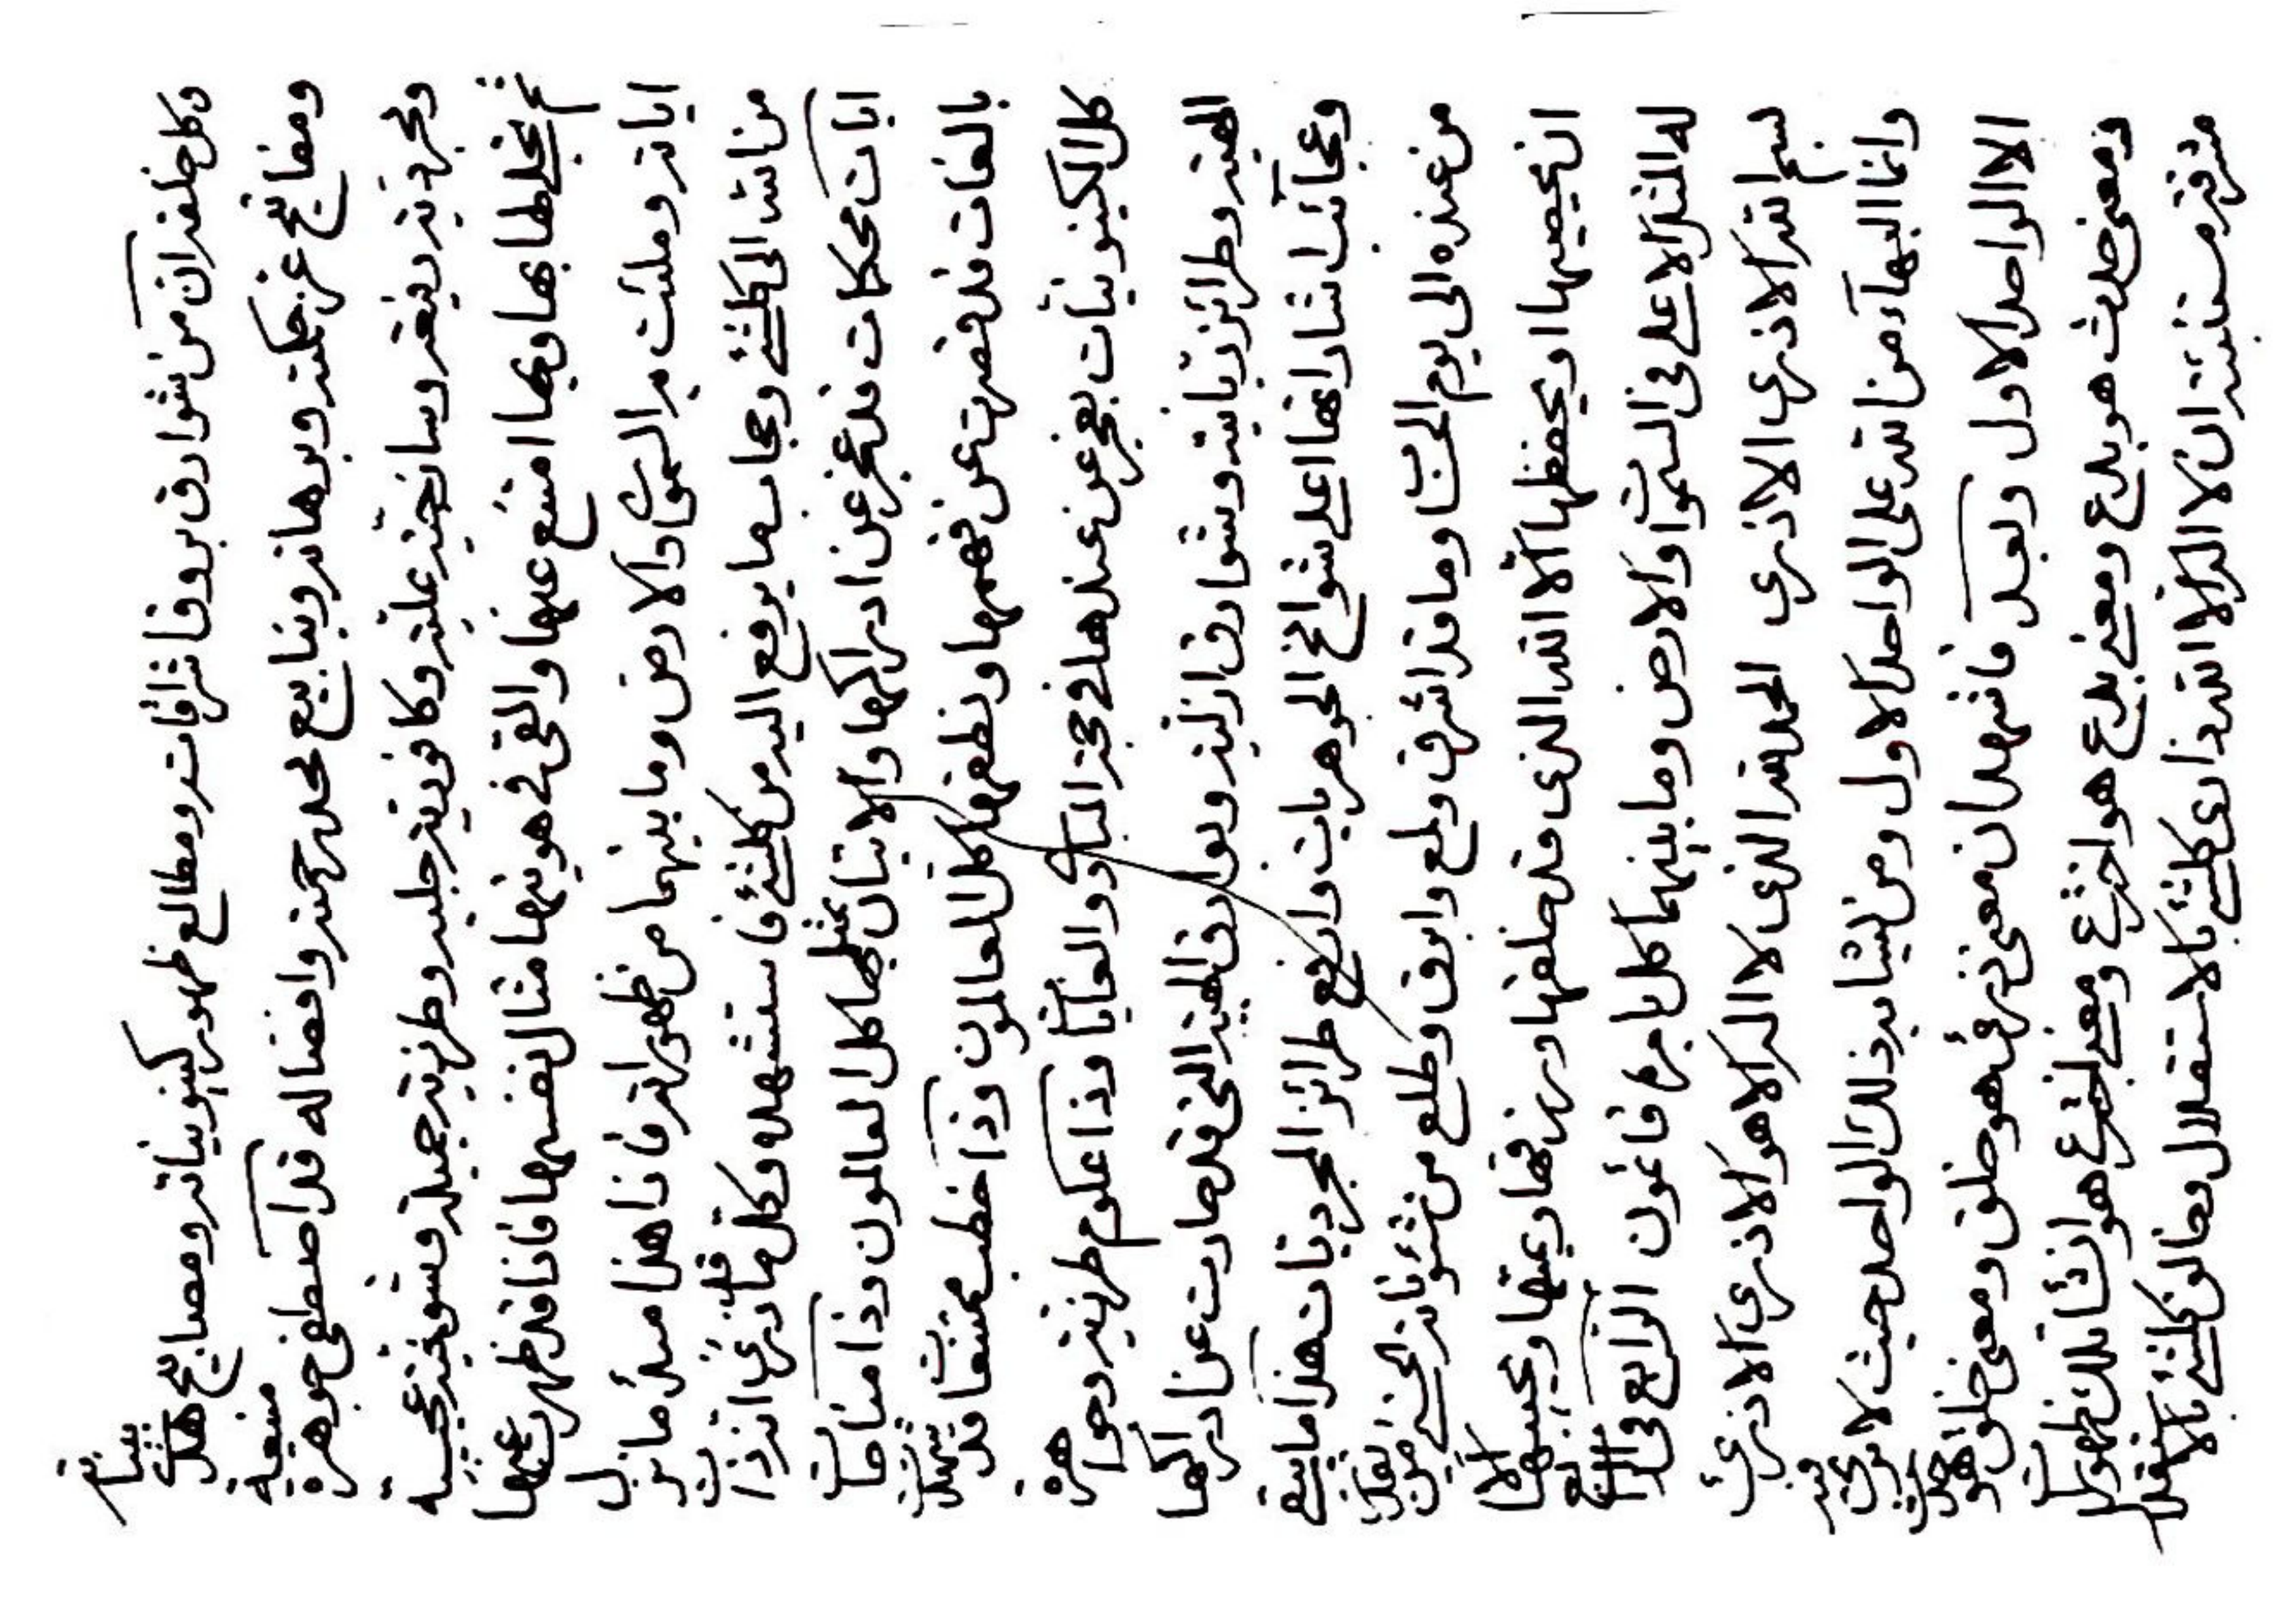 وكل خلقه ان من شوارق بروقات ومطالع ظهور كينونياته ومصابيح
ومفاتيح عز حكمته وبرهانه وينابيع رحمته وافضاله قد اصطفى جوهرة منيعة
ومجردية رفيعة وساذجية علية وكافورية جلية وطرزية جميلة وشوخية عجيبة
ثم تجلى لها بها وبها امتنع عنها والقى في هويتها مثال نفسها فاذا قد ظهرت عنها
اياته وملئت بر السموات والارض وما بينهما من ظهوراته فاذا هذا مبدء ما نزل
من الله الى كلشئ وحجاب ما يرفع اليه من كلشئ فاستشهد وكل ما ذرء انه ذا
ايات محكمات قد عجز عن ادراكها والاتيان بمثلها كل العالمون وذا مناجات
بالغات قد قصرت عن فهمها ونطقها كل العالمون وذا خطب ممتنعات قد
كل الكينونيات بعجز عن عندها في والغايات وذا علوم طرزية وجواهر
الهية وطرائز ربانية وشوارق ازلية وبوارق الهية التي قد عن ادراكها
وعجائب اشاراتها اعلى شوامخ الجوهريات وارفع طرائز المجرديات هذا ما بينة
من عنده الى يوم الحساب وما قد اشرق ولمع وابرق وطلع من شئوناته
ان يحصيها او يحفظها الا الله الذي قد خلقها ورزقها ويميتها ويحييها الا
له المثل الاعلى في السموات والارض وما بينهما كل بامره قائمون الرابع في الرابع
بسم الله الاذرء الاذرء الحمد لله الذي لا اله الا هو الاذرء الاذرء
وانما البهاء من الله على الواحد الاول ومن يشابه ذلك الواحد حيث لا يرى فيه
الا الواحد الاول وبعد فاشهد ان معنى ذرء هو خلق ومعنى خلق هو
ومعنى حدث هو بدع ومعنى بدع هو اخترع ومعنى اخترع هو انشا تلك ظهورات
مشرقة ان لا اله الا الله ذارئ كلشئ بالاستقلال وخالق كلشئ بالاستقلال